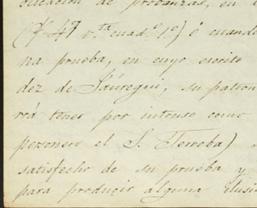 (f 47 v.ta cuad.o 1.o) é cuando
na prueba, en cuyo escrito
dez de Jáuregui, su patron
rá tener por intruso como
personero el S. Terroba)
satisfecho de su prueba y
para producir alguna ilusi